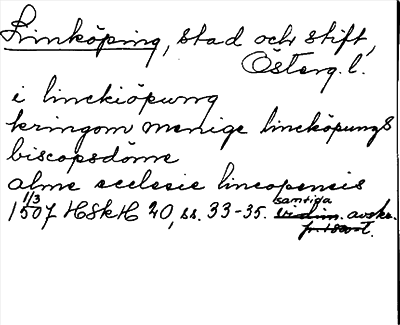 Linköping, stad och stift,
Österg. l.
i linckiöpwng
kringom menige lincköpungs
biscopsdöme
alme ecclesie lincopensis
1/3
samtida
1507 HSkH 20, ss. 33-35. avskr.